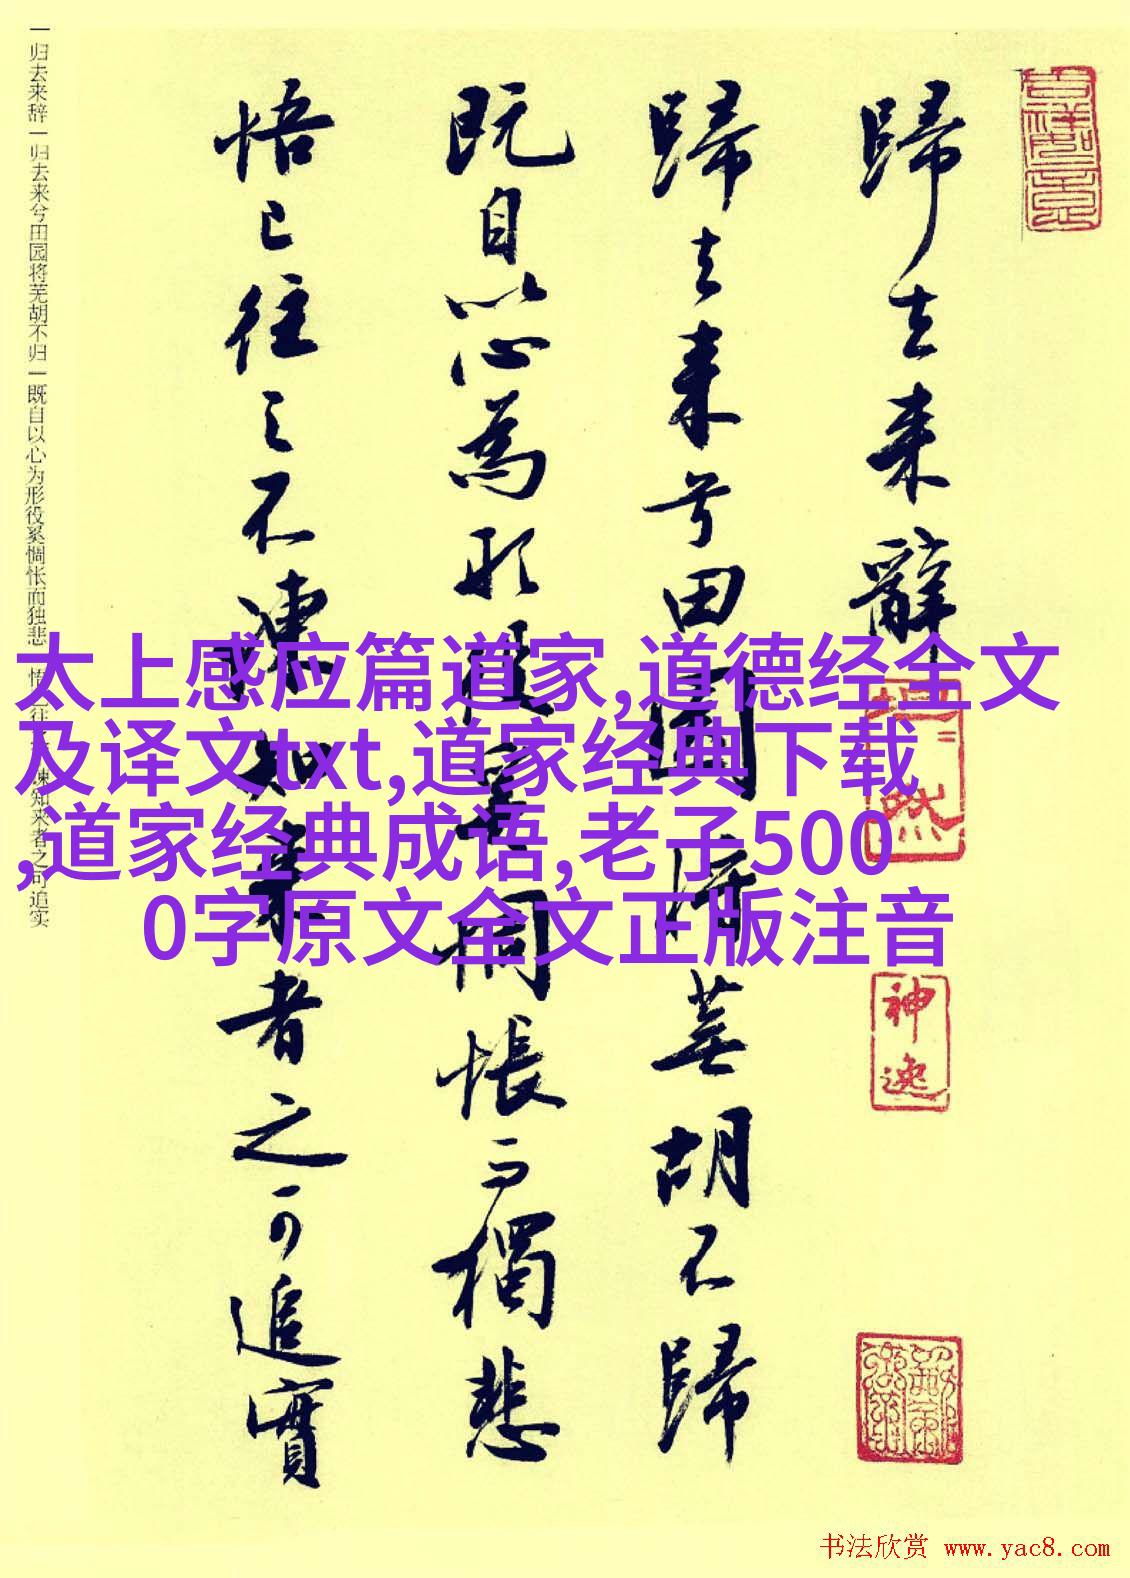 歸去来辭
歸去来兮田園将蕪胡不歸
既自以心為形役奚惆悵而獨悲
悟已往之不諫知来者之可追實
一归去来辞一归去来兮田园将芜胡不归一既自以心为形役奚惆怅而独悲 悟已往之不谏知来者之可追实
太上感应篇道家,道德经全文
及译文txt,道家经典下载
,道家经典成语,老子500
0字原文全文正版注音
神逸
书法欣赏 www.yac8.com